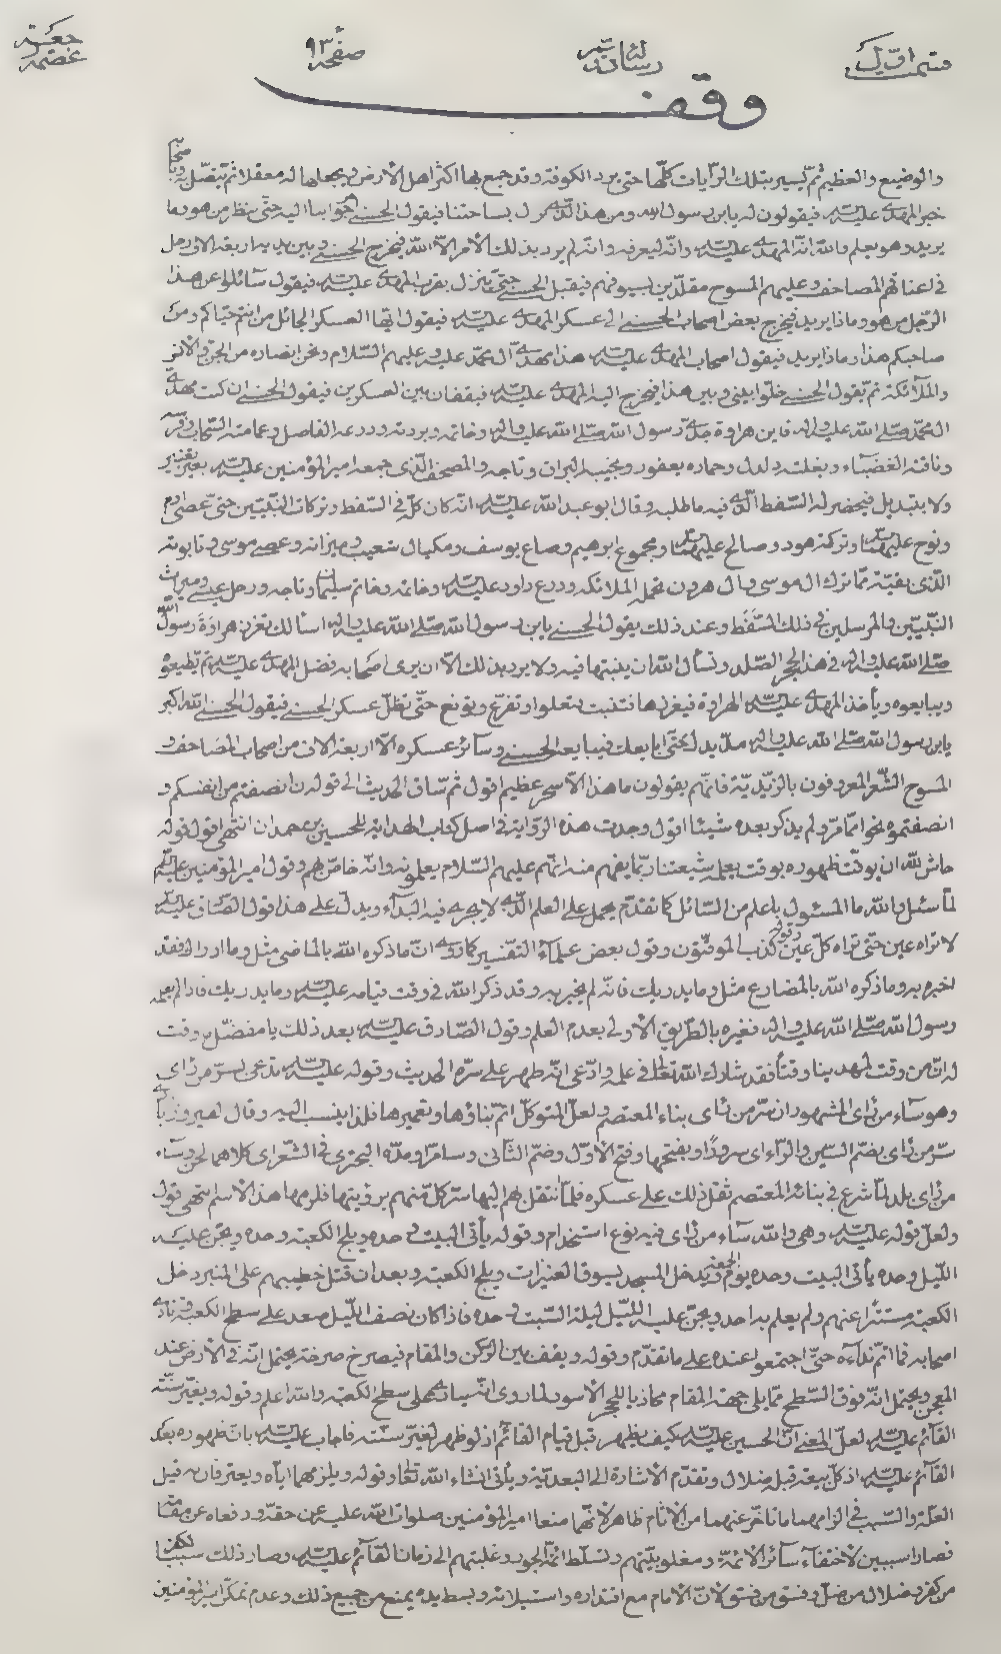 قسمت اوّل
رسالة
صفحه ٩٣
وقف
والوضيع والعظيم ثمّ يسير بتلك الرّايات كلّها حتى يرد الكوفة وقد جمع بها اكثر اهل الأرض ويجعلها له معقلا ثم يتّصل به و
خبر المهدى عليه السّلم فيقولون له يا بن رسول الله ومن هذا الّذى نزل بساحتنا فيقول الحسنى اخرجوا بنا اليه حتّى ننظر من هو وما
يريد وهو يعلم والله انّه المهدى عليه السّلم وانّه ليعرفه وانّه لم يرد بذلك الأمر الّا الله فيخرج الحسنى وبين يديه اربعة الاف رجل
فى اعناقهم المصاحف وعليهم المسوح مقلّدين بسيوفهم فيقبل الحسنى حتى ينزل بقرب المهدى عليه السّلم فيقول سائلوا عن هذا
الرّجل من هو وماذا يريد فيخرج بعض اصحاب الحسنى الى عسكر المهدى عليه السّلم فيقول ايّها العسكر الجائل من انتم حيّاكم ومن
صاحبكم هذا وماذا يريد فيقول اصحاب المهدى عليه السّلم هذا مهدىّ آل محمّد عليه وعليهم السّلام ونحن انصاره من الجنّ والانس
والملآئكة ثم يقول الحسنى خلّوا بينى وبين هذا فيخرج اليه المهدى عليه السّلم فيقفان بين العسكرين فيقول الحسنى ان كنت مهدىّ
ال محمّد صلّى الله عليه واله فاين هراوة جدّى رسول الله صلّى الله عليه واله وخاتمه وبردته ودرعه الفاضل وعمامته السّحاب وفرسه
وناقته الغضبآء وبغلته دلدل وحماره يعفور ونجيبه البراق وتاجه والمصحف الّذى جمعه امير المؤمنين عليه السّلم بغير تغيير
ولا تبديل فيحضر له السّفط الّذى فيه ما طلبه وقال ابو عبد الله عليه السّلم انّه كان كلّه فى السّفط وتركات النّبيّين حتى عصى ادم
ونوح عليهما السّلم وتركة هود وصالح عليهما السّلم ومجموع ابرهيم وصاع يوسف ومكيال شعيب وميزانه وعصى موسى وتابوته
الّذى بقيّة ممّا ترك ال موسى وال هرون تحمله الملائكة ودرع داود عليه السّلم وخاتمه وخاتم سليمان وتاجه ورحل عيسى وميراث
النّبيّين والمرسلين فى ذلك السَّفَط وعند ذلك يقول الحسنى يا بن رسول الله صلّى الله عليه واله اسألك تغرز هراوة رسول الله
صلّى الله عليه واله فى هذا الحجر الصّلد وتسأل الله ان ينبتها فيه ولا يريد بذلك الّا ان يرى اصحابه فضل المهدى عليه السّلم ثم يطيعوه
ويبايعوه ويأخذ المهدى عليه السّلم الهراوة فيغرزها فتنبت فتعلوا وتفرّع وتونع حتّى تظلّ عسكر الحسنى فيقول الحسنى الله اكبر
يا بن رسول الله صلّى الله عليه واله مدّ يدك حتى ابايعك فيبايعه الحسنى وسائر عسكره الّا اربعة الاف من اصحاب المصاحف و
المسوح الشّعر المعروفون بالزّيديّة فانّهم يقولون ما هذا الّا سحر عظيم اقول ثمّ ساق الحديث الى قوله ان انصفتم من انفسكم و
انصفتموه نحوا ممّا مرّ ولم يذكر بعده شيئا اقول وجدت هذه الرّواية فى اصل كتاب الهداية للحسين بن حمدان انتهى اقول قوله
حاش لله ان يوقّت ظهوره بوقت يعلمه شيعتنا ربّما يفهم منه انّهم عليهم السّلام يعلمونه وانّه خاصّ بهم وقول امير المؤمنين عليه السّلم
لمّا سئل والله ما المسئول باعلم من السّائل كما تقدّم يحمل على العلم الّذى لا يجرى فيه البدآء ويدلّ على هذا قول الصّادق عليه السّلم
لا تراه عين حتّى تراه كلّ عين وقوله كذب الموقّتون وقول بعض علمآء التّفسير كما روى انّ ما ذكره الله بالماضى مثل وما ادراك فقد
اخبره به وما ذكره الله بالمضارع مثل وما يدريك فانّه لم يخبر به وقد ذكر الله فى وقت قيامه عليه السّلم وما يدريك فاذا لم يعلمه
رسول الله صلّى الله عليه واله فغيره بالطّريق الأولى بعدم العلم وقول الصّادق عليه السّلم بعد ذلك يا مفضّل من وقّت
لمهدينا وقتاً فقد شارك الله تعالى فى علمه وادّعى انّه ظهر على سرّه الحديث وقوله عليه السّلم تدعى بسرّ من رأى
وهو سآء من رأى المشهور انّ سرّ من رأى بناء المعتصم ولعلّ المتوكّل اتمّ بناؤها وتعميرها فلذا ينسب اليه وقال الفيروزآبادى
سرّ من رأى بضمّ السّين والرّآء اى سرور وبفتحهما وفتح الأوّل وضمّ الثّانى وسامرّا ومدّه البحترى فى الشّعر اى كلاهما لحن وسآء
من رأى بلد لمّا شرع فى بنائه المعتصم ثقل ذلك على عسكره فلمّا انتقل بهم اليها سرّ كلّ منهم برؤيتها فلزمها هذا الاسم انتهى قول
ولعلّ قوله عليه السّلم وهى والله سآء من رأى فيه نوع استخدام وقوله يأتى البيت وحده ويلج الكعبة وحده ويجنّ عليه
اللّيل وحده يأتى البيت وحده يوم الجمعة ويدخل المسجد يسوق العنيزات ويلج الكعبة وبعد ان قتل خطيبهم على المنبر دخل
الكعبة مستترا عنهم ولم يعلم به احد ويجنّ عليه اللّيل ليلة السّبت وحده فاذا كان نصف اللّيل صعد على سطح الكعبة ونادى
اصحابه فما اتمّ ندآءه حتّى اجتمعوا عنده على ما تقدّم وقوله ويقف بين الرّكن والمقام فيصرخ صرخة يحتمل انّه فى الأرض عند
المعجن ويحتمل انّه فوق السّطح ممّا يلى جهة المقام محاذيا للحجر الأسود لما روى انّه ينادى على سطح الكعبة والله اعلم وقوله ويغيّر سنّة
القآئم عليه السّلم لعلّ المعنى انّ الحسين عليه السّلم كيف يظهر قبل قيام القآئم اذ لو ظهر لغيّر سنّته فاجاب عليه السّلم بانّ ظهوره بعد
القآئم عليه السّلم اذ كلّ بيعة قبله ضلال وتقدّم الاشارة الى البعديّة ويأتى انشاء الله تعالى وقوله ويلزمهما ايّاه ويعترفان به قيل
العلّة والسّبب فى الزامهما ما تأخّر عنهما من الآثام ظاهر لأنّهما منعا امير المؤمنين صلوات الله عليه عن حقّه ودفعاه عن مقامه
فصارا سببين لاختفآء سآئر الأئمّة ومغلوبيّتهم وتسلّط ائمّة الجور وغلبتهم الى زمان القآئم عليه السّلم وصار ذلك سببا لكفر
من كفر وضلال من ضلّ وفسق من فسق لانّ الامام مع اقتداره واستيلائه وبسط يده يمنع من جميع ذلك وعدم تمكّن امير المؤمنين